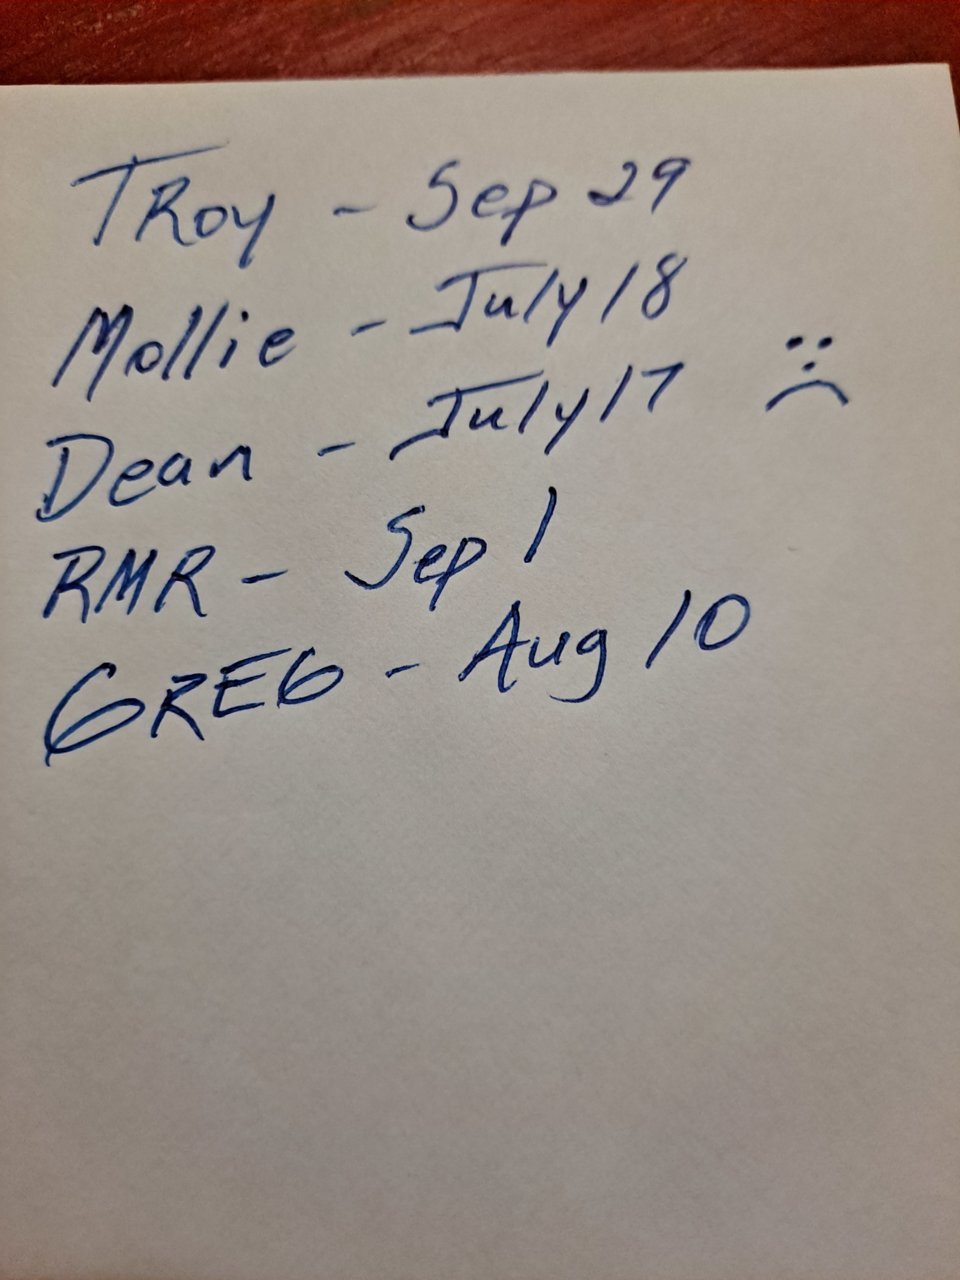 TRoy - Sep 29
Mollie - July 18
Dean - July 17
RMR - Sep 1
GREG - Aug 10